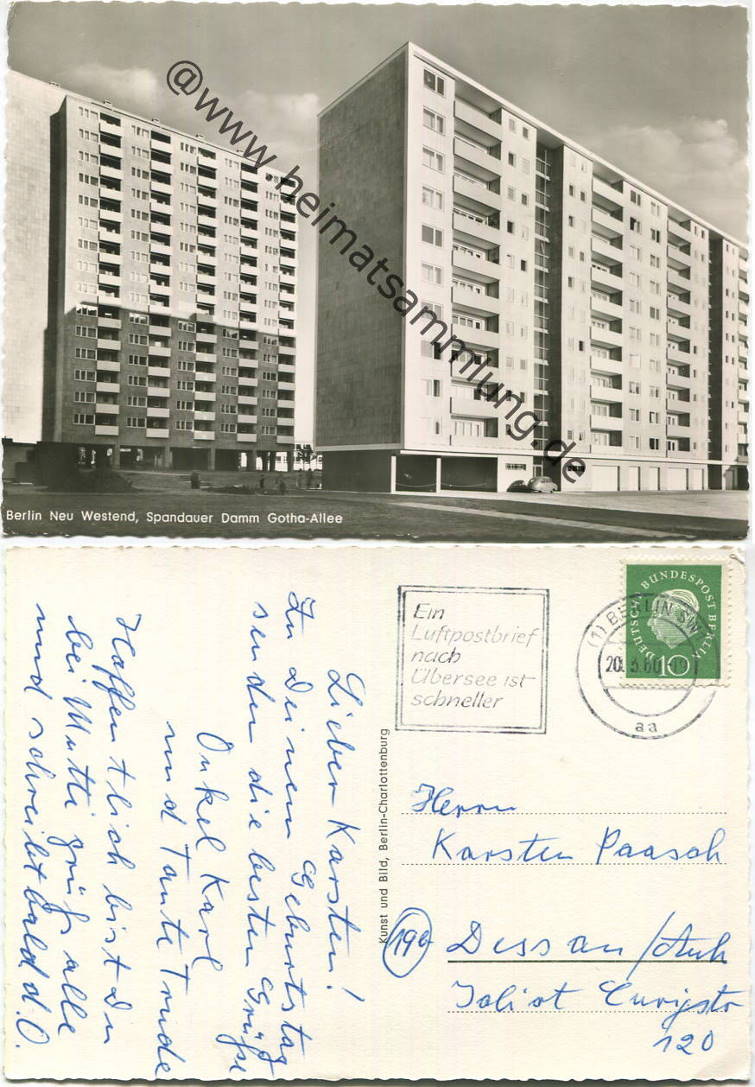 @www.heimatsammlung.de
Berlin Neu Westend, Spandauer Damm Gotha-Allee
Ein
Luftpostbrief
nach
Übersee ist
schneller
(1) BERLIN SW
aa
DEUTSCHE BUNDESPOST BERLIN
10
Kunst und Bild, Berlin-Charlottenburg
Lieber Karsten!
Zu Deinem Geburtstag
senden die besten Grüße
Onkel Karl
und Tante Trude
Hoffentlich bist Du
bei Mutti grüß alle
und schreibt bald d.O.
Herrn
Karsten Paasch
Dessau/Anh
Joliot Curiestr
120